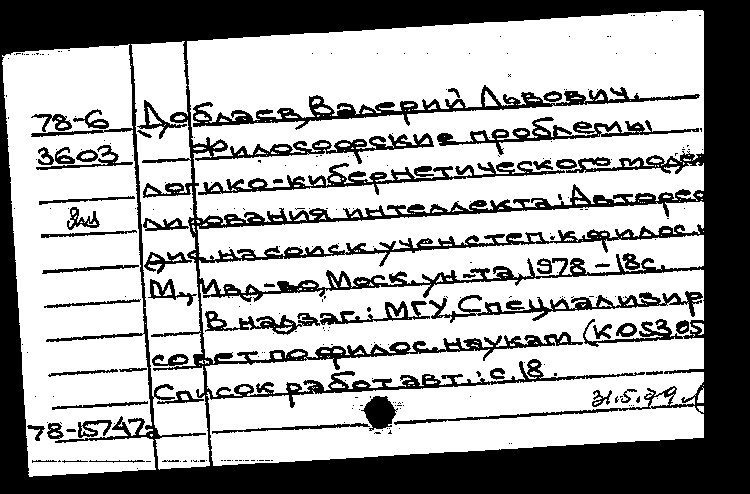 78-6 Доблаев, Валерий Львович.
3603 Философские проблемы
логико-кибернетического моде
лирования интеллекта: Авторе
дис. на соиск. учен. степ. к. филос. н
М., Изд-во Моск. ун-та, 1978 - 18с.
В надзаг.: МГУ, Специализир
совет по филос. наукам (К 053.05
Список работ авт.: с. 18.
31.5.79
78-15747а